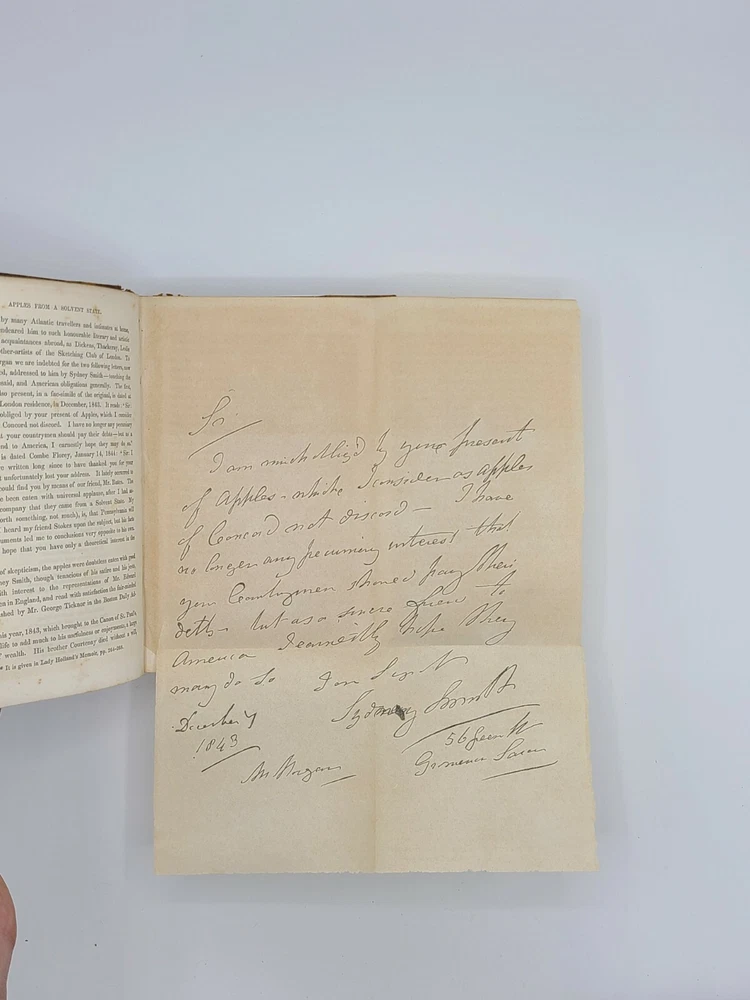 APPLES FROM A SOLVENT STATE.
by many Atlantic travellers and intimates at home,
endeared him to such honourable literary and artistic
acquaintances abroad, as Dickens, Thackeray, Leslie
other-artists of the Sketching Club of London. To
rgan we are indebted for the two following letters, now
ed, addressed to him by Sydney Smith—touching the
onald, and American obligations generally. The first,
also present, in a fac-simile of the original, is dated at
London residence, in December, 1843. It reads: "Sir:
obliged by your present of Apples, which I consider
Concord not discord. I have no longer any pecuniary
at your countrymen should pay their debts—but as a
end to America, I earnestly hope they may do so."
is dated Combe Florey, January 14, 1844: "Sir: I
ve written long since to have thanked you for your
t unfortunately lost your address. It lately occurred to
could find you by means of our friend, Mr. Bates. The
been eaten with universal applause, after I had as-
company that they came from a Solvent State. By
orth something, not much), is, that Pennsylvania will
I heard my friend Stokes upon the subject, but his facts
uments led me to conclusions very opposite to his own.
hope that you have only a theoretical interest in the
of skepticism, the apples were doubtless eaten with good
ney Smith, though tenacious of his satire and his jest,
th interest to the representations of Mr. Edward
en in England, and read with satisfaction the fair-minded
shed by Mr. George Ticknor in the Boston Daily Ad-
his year, 1843, which brought to the Canon of St. Paul's
life to add much to his usefulness or enjoyments, a large
wealth. His brother Courtenay died without a will,
* It is given in Lady Holland's Memoir, pp.
Sir.
I am much obliged by your present
of Apples - which I consider as apples
of Concord not discord — I have
no longer any pecuniary interest that
your Countrymen should pay their
debts - but as a sincere friend to
America I earnestly hope they
may do so I am Sir
Sydney Smith
December 7
1843
56 Green St
Grosvenor Square
Mr Morgan